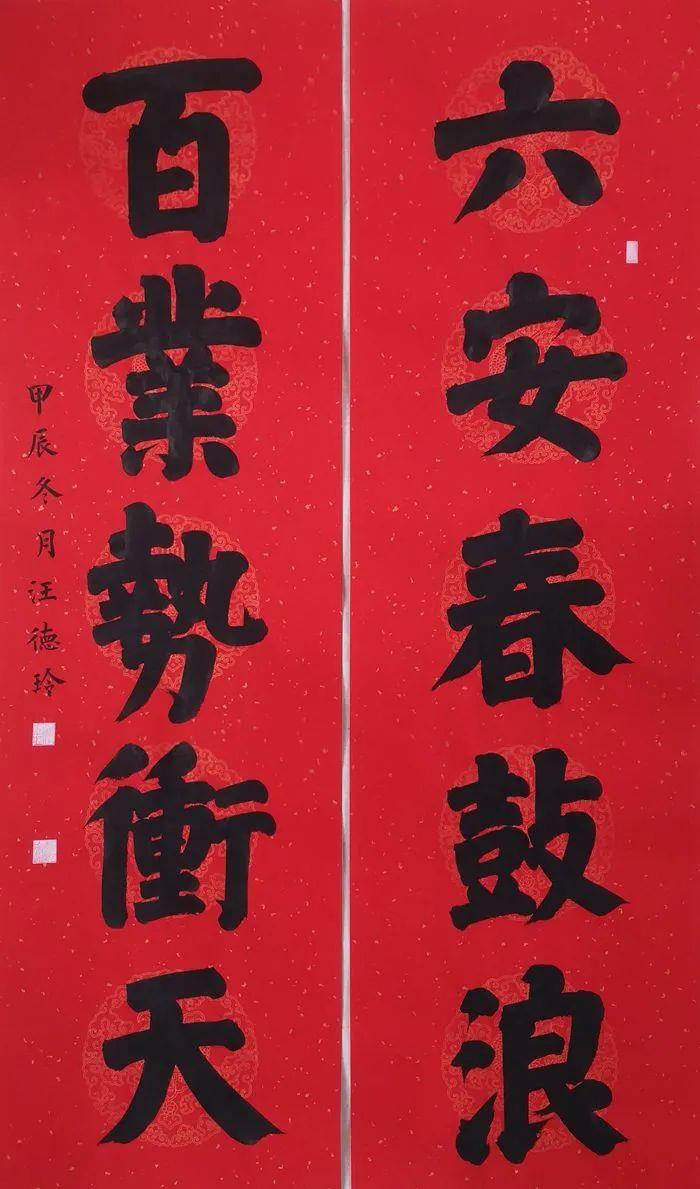 六安春鼓浪
百業勢衝天
甲辰冬月汪德玲